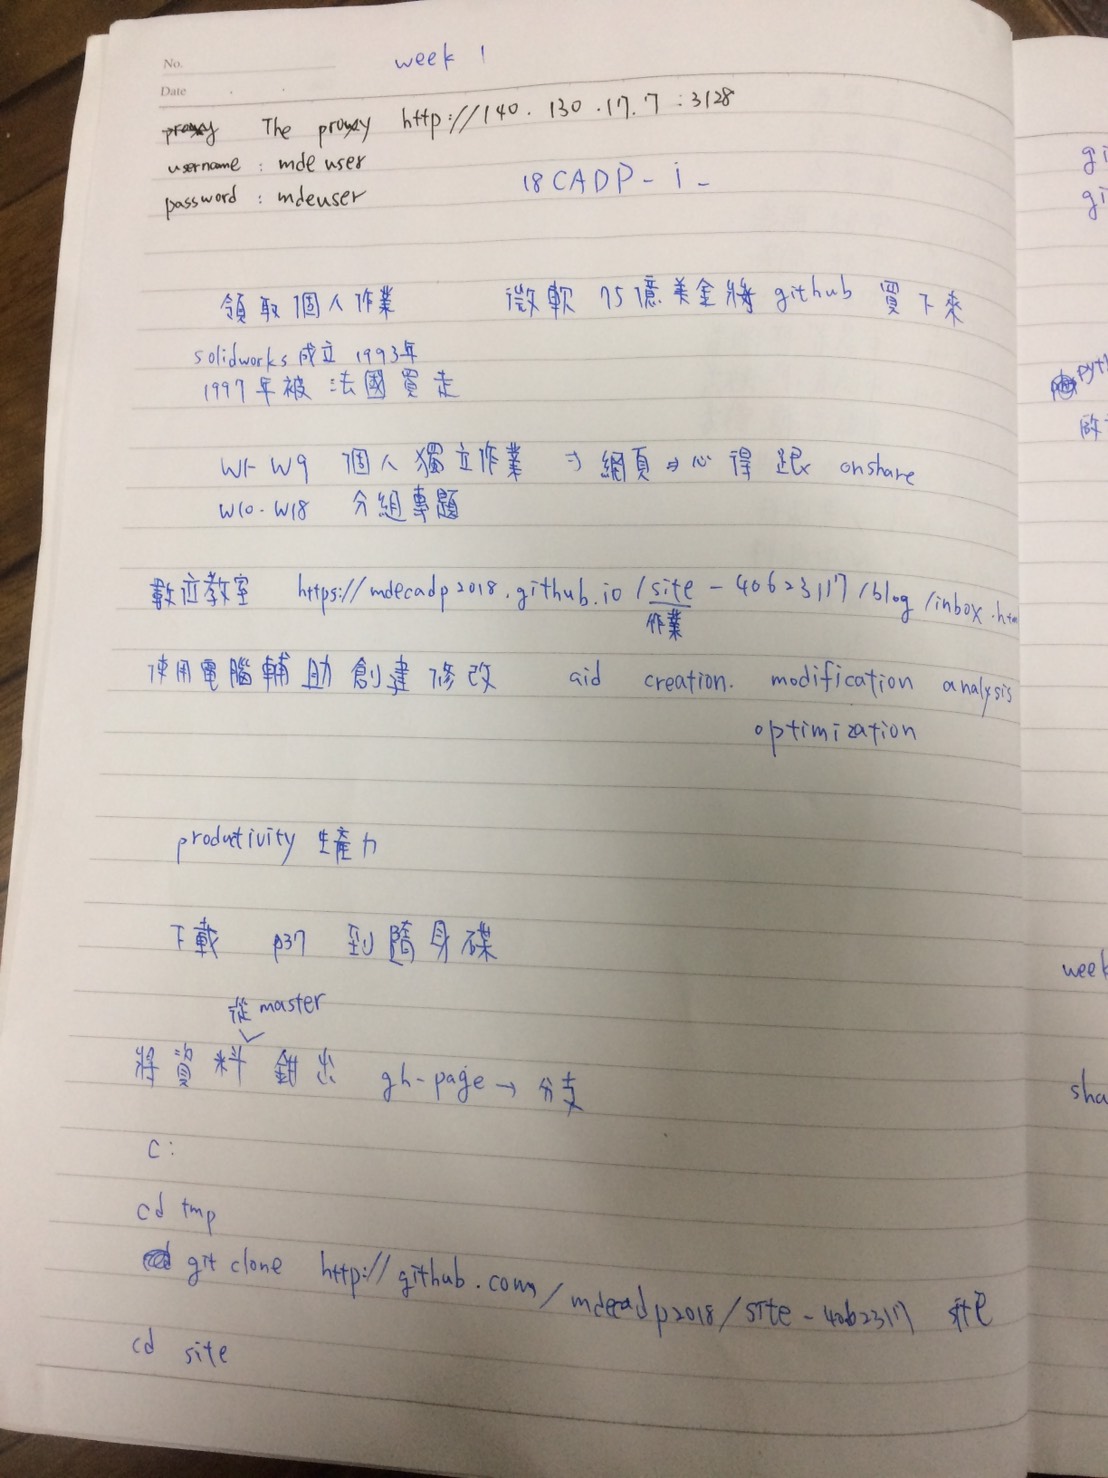 No.
week 1
Date
The proxy http://140.130.17.7:3128
username : mdeuser
password : mdeuser
18CADP-i-
領取個人作業 微軟 75億美金將 github 買下來
solidworks 成立 1993年
1997年被法國買走
W1-W9 個人獨立作業 → 網頁 → 心得跟 onshare
W10-W18 分組專題
數位教室 https://mdecadp2018.github.io/site-40623117/blog/inbox.htm
作業
使用電腦輔助創建修改 aid creation. modification analysis
optimization
productivity 生產力
下載 p37 到隨身碟
從 master
將資料 出 gh-page → 分支
c:
cd tmp
git clone http://github.com/mdecadp2018/site-40b23117 site
cd site
gi
gi
pyth
啟
week
sha